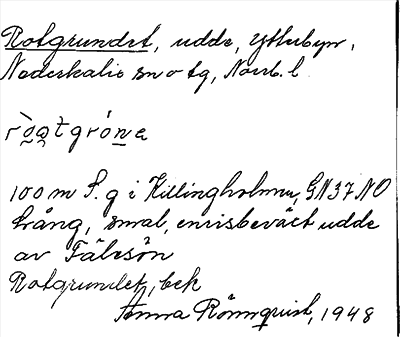 Rotgrundet, udde, Ytterbyn,
Nederkalix sn o tg, Norrb. l.
ròatgróna
100 m S. g i Killingholmen, GN37NO
trång, smal, enrisbeväxt udde
av Fälesön
Rotgrundet, bek
Anna Rönnquist, 1948